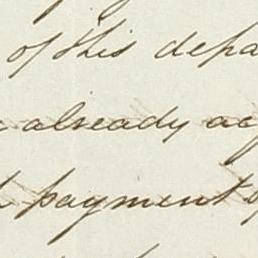 of this depa
already ac
payment